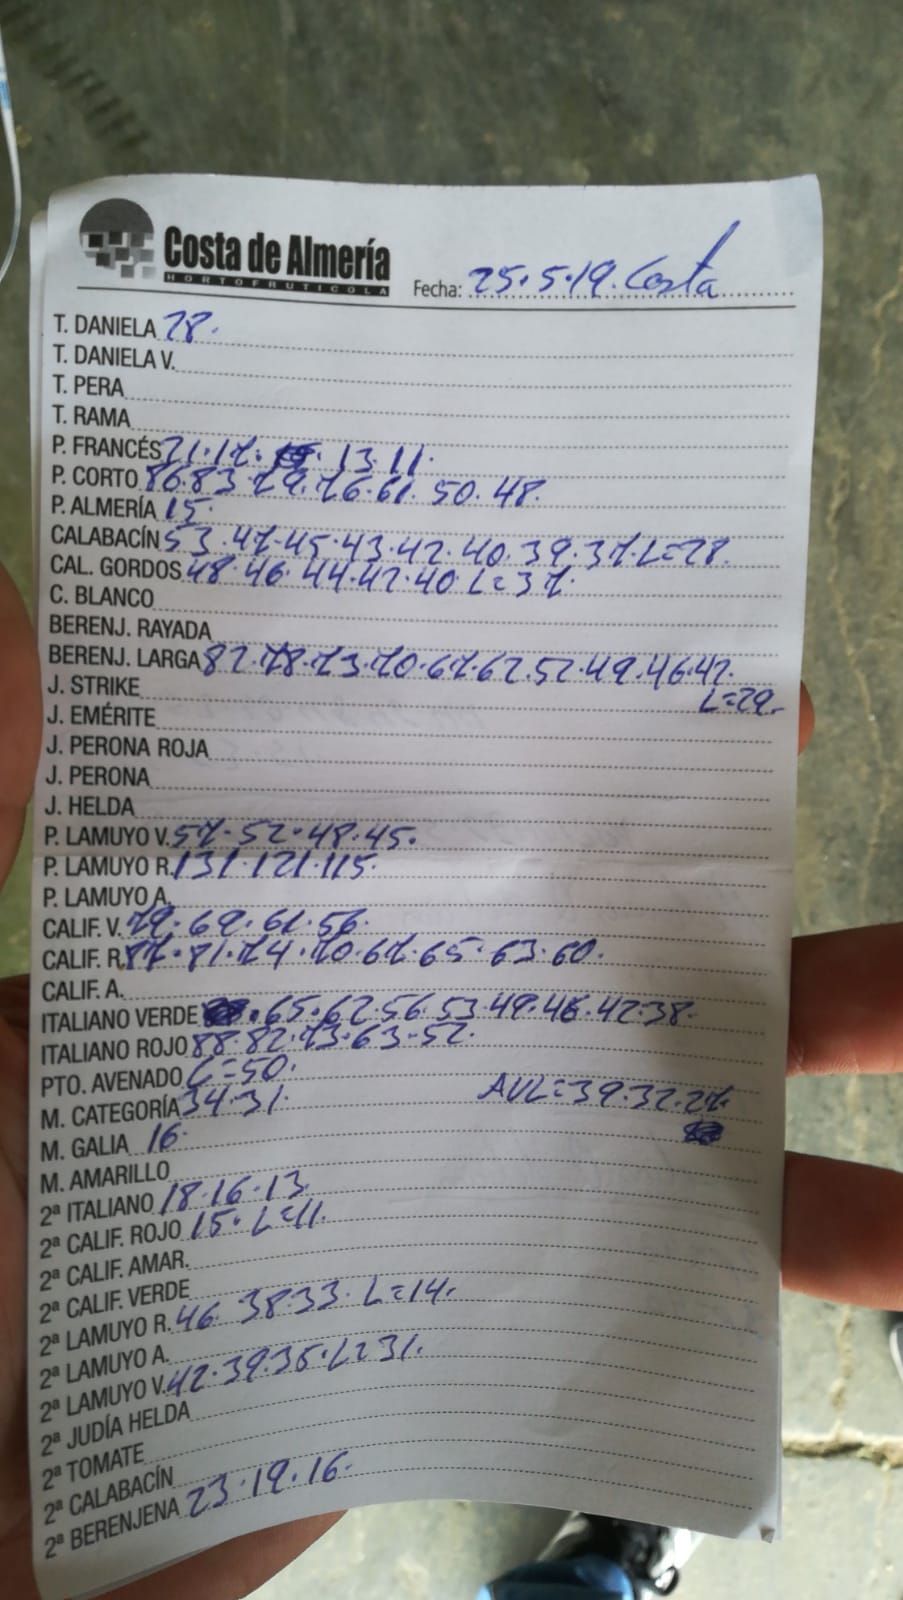 Costa de Almería
HORTOFRUTICOLA
Fecha: 25.5.19. Costa
T. DANIELA 28.
T. DANIELA V.
T. PERA
T. RAMA
P. FRANCÉS 21.17. 13.11.
P. CORTO 86.83.79.76.61. 50. 48.
P. ALMERÍA 15.
CALABACÍN 53.47.45.43.42.40.39.37. L=28.
CAL. GORDOS 48.46.44.42.40 L=37.
C. BLANCO
BERENJ. RAYADA
BERENJ. LARGA 82.78.73.70.67.62.52.49.46.42.
L=29.
J. STRIKE
J. EMÉRITE
J. PERONA ROJA
J. PERONA
J. HELDA
P. LAMUYO V. 57.52.48.45.
P. LAMUYO R. 131.121.115.
P. LAMUYO A.
CALIF. V. 79.69.61.56.
CALIF. R. 87.81.74.70.67.65.63.60.
CALIF. A.
ITALIANO VERDE .65.62.56.53.49.46.42.38.
ITALIANO ROJO 88.82.73.63.52.
PTO. AVENADO L=50.
M. CATEGORÍA 34.31. AVL=39.32.27.
M. GALIA 16.
M. AMARILLO
2ª ITALIANO 18.16.13.
2ª CALIF. ROJO 15. L=11.
2ª CALIF. AMAR.
2ª CALIF. VERDE
2ª LAMUYO R. 46.38.33. L=14.
2ª LAMUYO A.
2ª LAMUYO V. 42.39.35. L=31.
2ª JUDÍA HELDA
2ª TOMATE
2ª CALABACÍN
2ª BERENJENA 23.19.16.